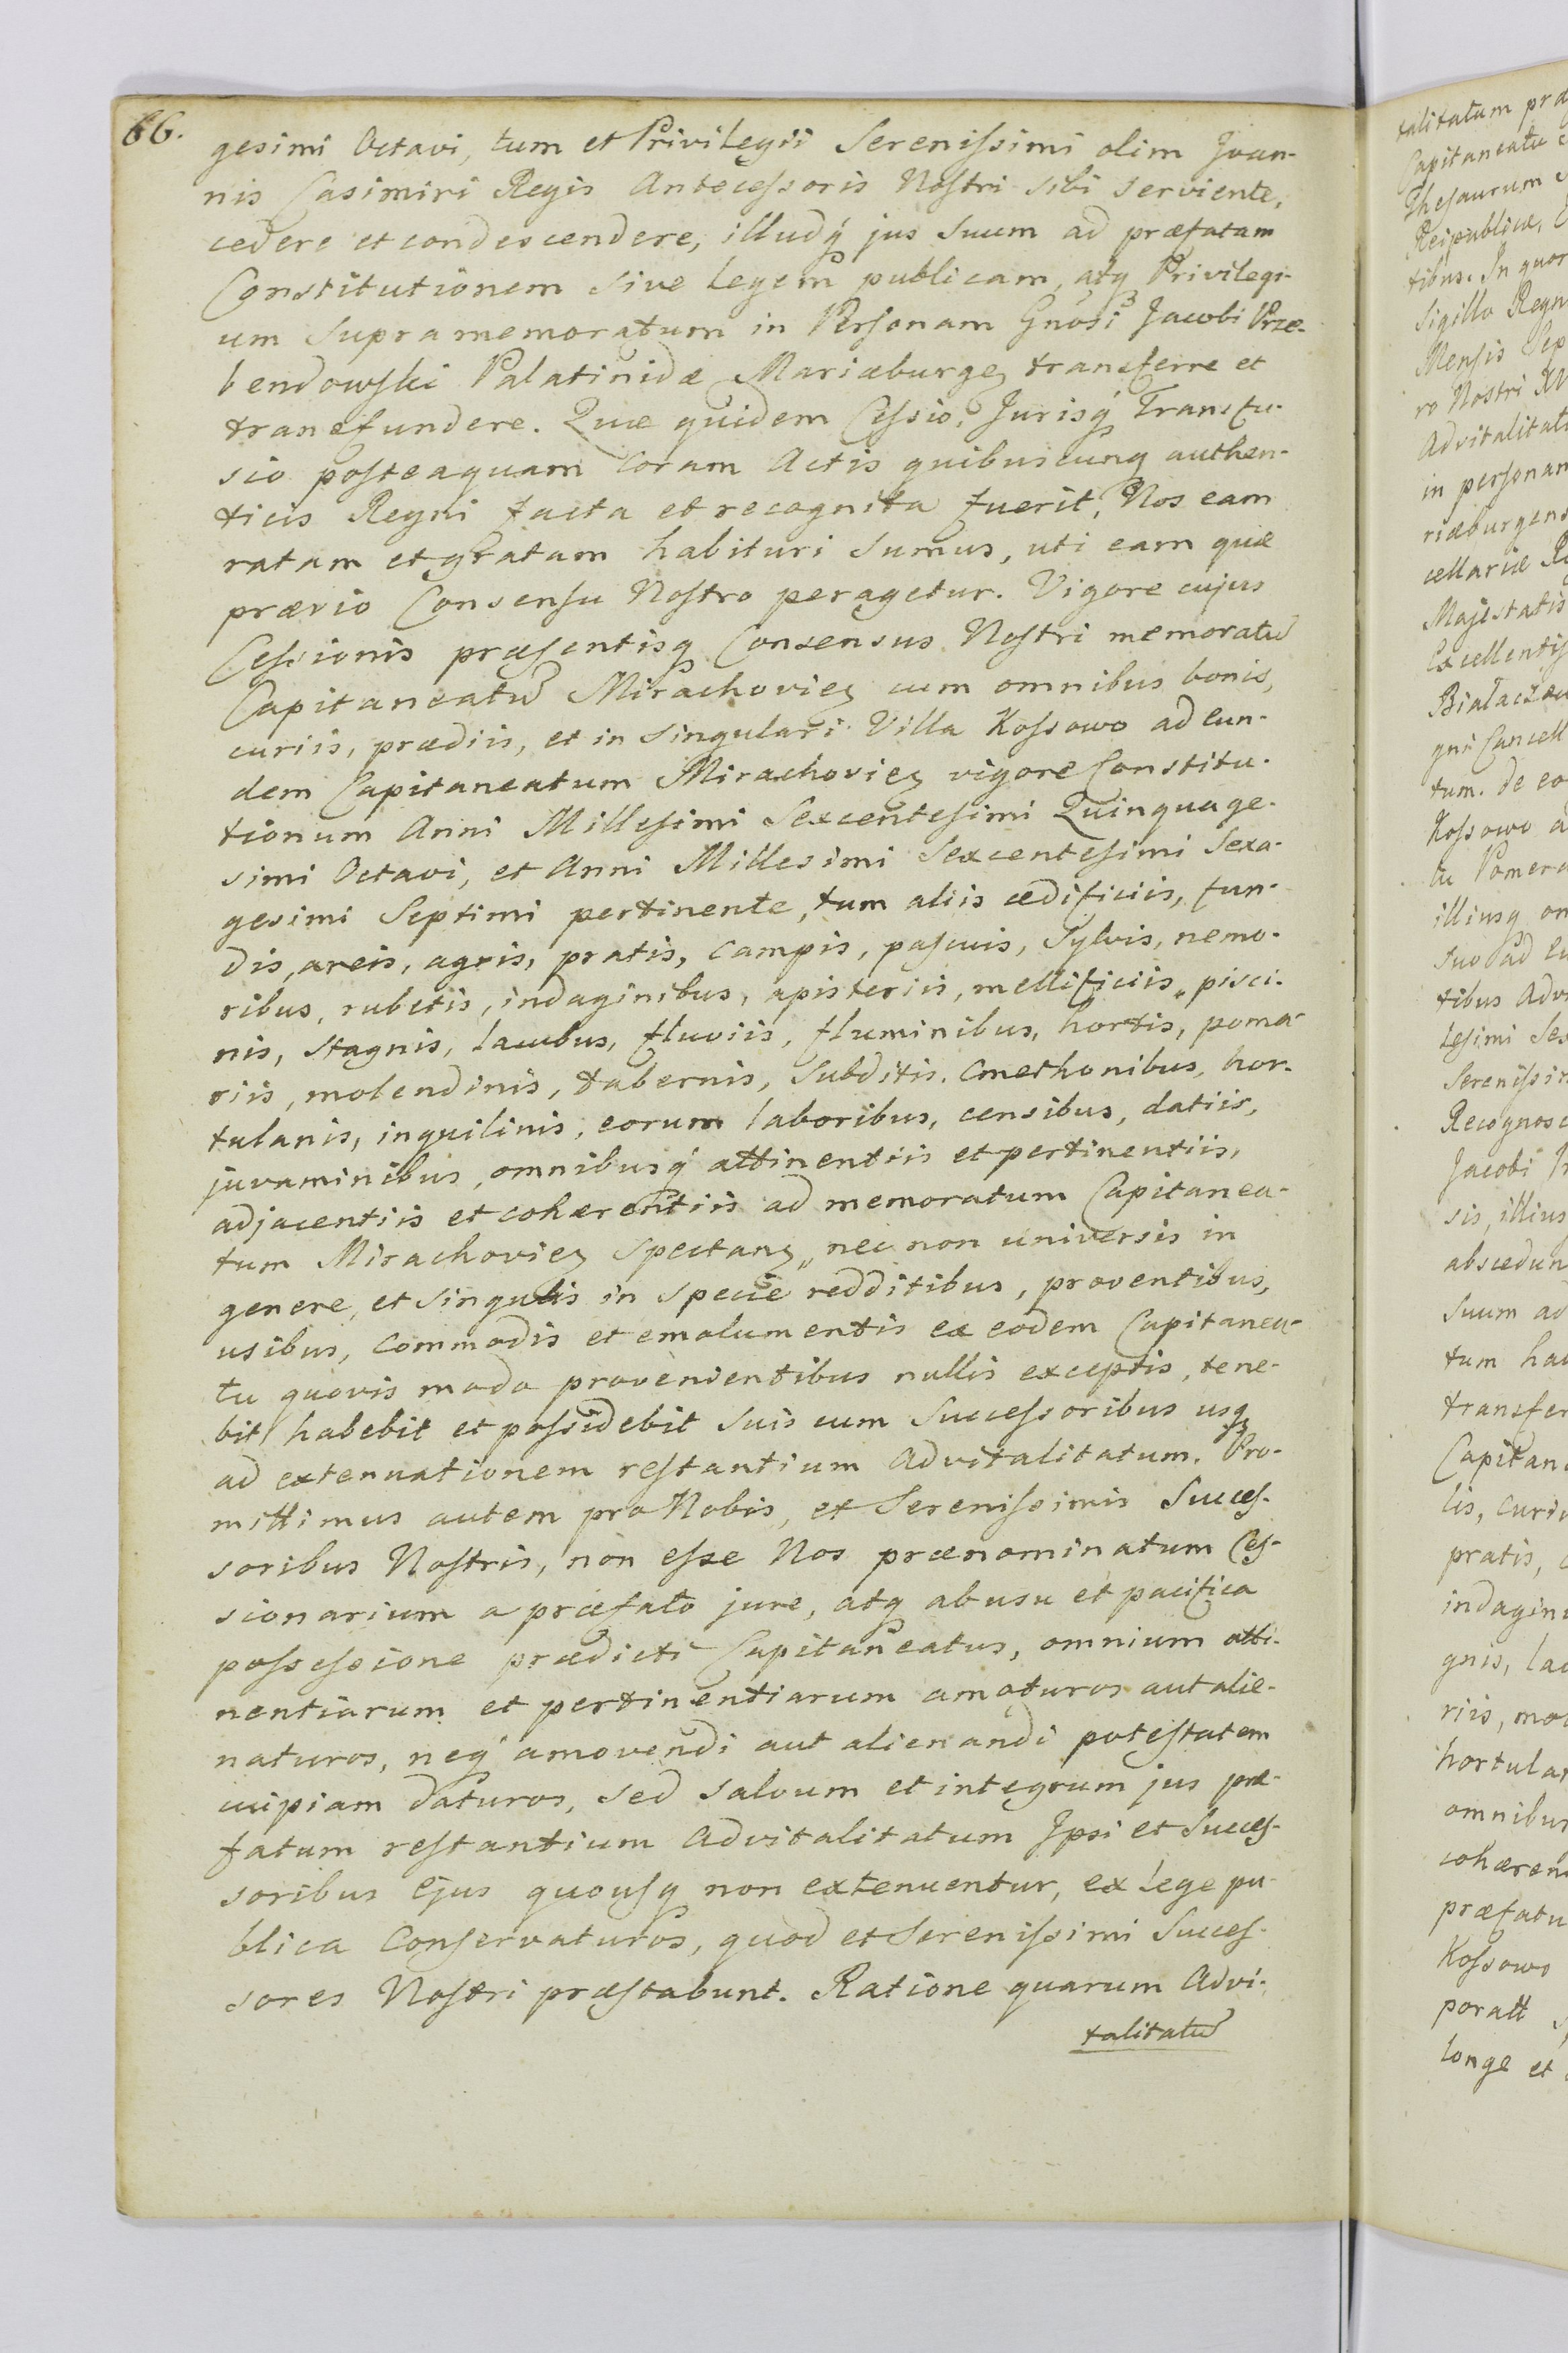 66.
gesimi Octavi, tum et Privilegii Serenissimi olim Joan-
nis Casimiri Regis Antecessoris Nostri sibi serviente,
cedere et condescendere, illudq́ jus suum ad præfatam
Constitutionem sive Legem publicam, atq Privilegi-
um supramemoratum in Personam Gnosi Jacobi Prze-
bendowski Palatinidæ Mariæburgeȝ transferre et
transfundere. Quæ quidem Cessio, Jurisq́ Transfu-
sio posteaquam coram Actis quibuscunq authen-
ticis Regni facta et recognita fuerit, Nos eam
ratam et gratam habituri sumus, uti eam quæ
prævio Consensu Nostro peragetur. Vigore cujus
Cessionis præsentisq Consensus Nostri memoratũ
Capitaneatũ Mirachovieȝ cum omnibus bonis,
curiis, prædiis, et in singulari Villa Kossowo ad eun-
dem Capitaneatum Mirachovieȝ vigore Constitu-
tionum Anni Millesimi Sexcentesimi Quinquage-
simi Octavi, et Anni Millesimi Sexcentesimi Sexa-
gesimi Septimi pertinente, tum aliis ædificiis, fun-
dis, areis, agris, pratis, campis, pascuis, sylvis, nemo-
ribus, rubetis, indaginibus, apisteriis, mellificiis, pisci-
nis, stagnis, lacubus, fluviis, fluminibus, hortis, poma-
riis, molendinis, tabernis, subditis, Cmethonibus, hor-
tulanis, inquilinis, eorum laboribus, censibus, datiis,
juvaminibus, omnibusq́ attinentiis et pertinentiis,
adjacentiis et cohærentiis ad memoratum Capitanea-
tum Mirachovieȝ spectanȝ, nec non universis in
genere, et singulis in specie redditibus, proventibus,
usibus, commodis et emolumentis ex eodem Capitanea-
tu quovis modo provenientibus nullis exceptis, tene-
bit, habebit et possidebit suis cum Successoribus usq
ad extenuationem restantium Advitalitatum. Pro-
mittimus autem pro Nobis, et Serenissimis Succes-
soribus Nostris, non esse Nos prænominatum Ces-
sionarium a præfato jure, atq ab usu et pacifica
possessione prædicti Capitaneatus, omnium atti-
nentiarum et pertinentiarum amoturos aut alie-
naturos, neq́ amovendi aut alienandi potestatem
cuipiam daturos, sed salvum et integrum jus præ-
fatum restantium Advitalitatum Ipsi et Succes-
soribus Ejus quousq non extenuentur, ex Lege pu-
blica Conservaturos, quod et Serenissimi Succes-
sores Nostri præstabunt. Ratione quarum Advi-
talitatũ
talitatum præ
Capitaneatu
Thesaurum
Reipublicæ,
tibus. In quor
Sigillo Regn
Mensis Sep
ro Nostri XV
Advitalitat
in personam
riæburgens
cellariæ R
Majestatis
Excellentiss
Białaczew
gni Cancell
tum. De eo
Kossowo a
tu Pomera
illiusq om
suo ad Eu
tibus Adv
lesimi Sex
Serenissim
Recognosc
Jacobi Pr
sis, illius
abscedun
suum ad
tum hac
transfer
Capitan
lis, curi
pratis,
indagini
gnis, lac
riis, mol
hortulan
omnibus
cohæren
præfatu
Kossowo
poratt
longe et